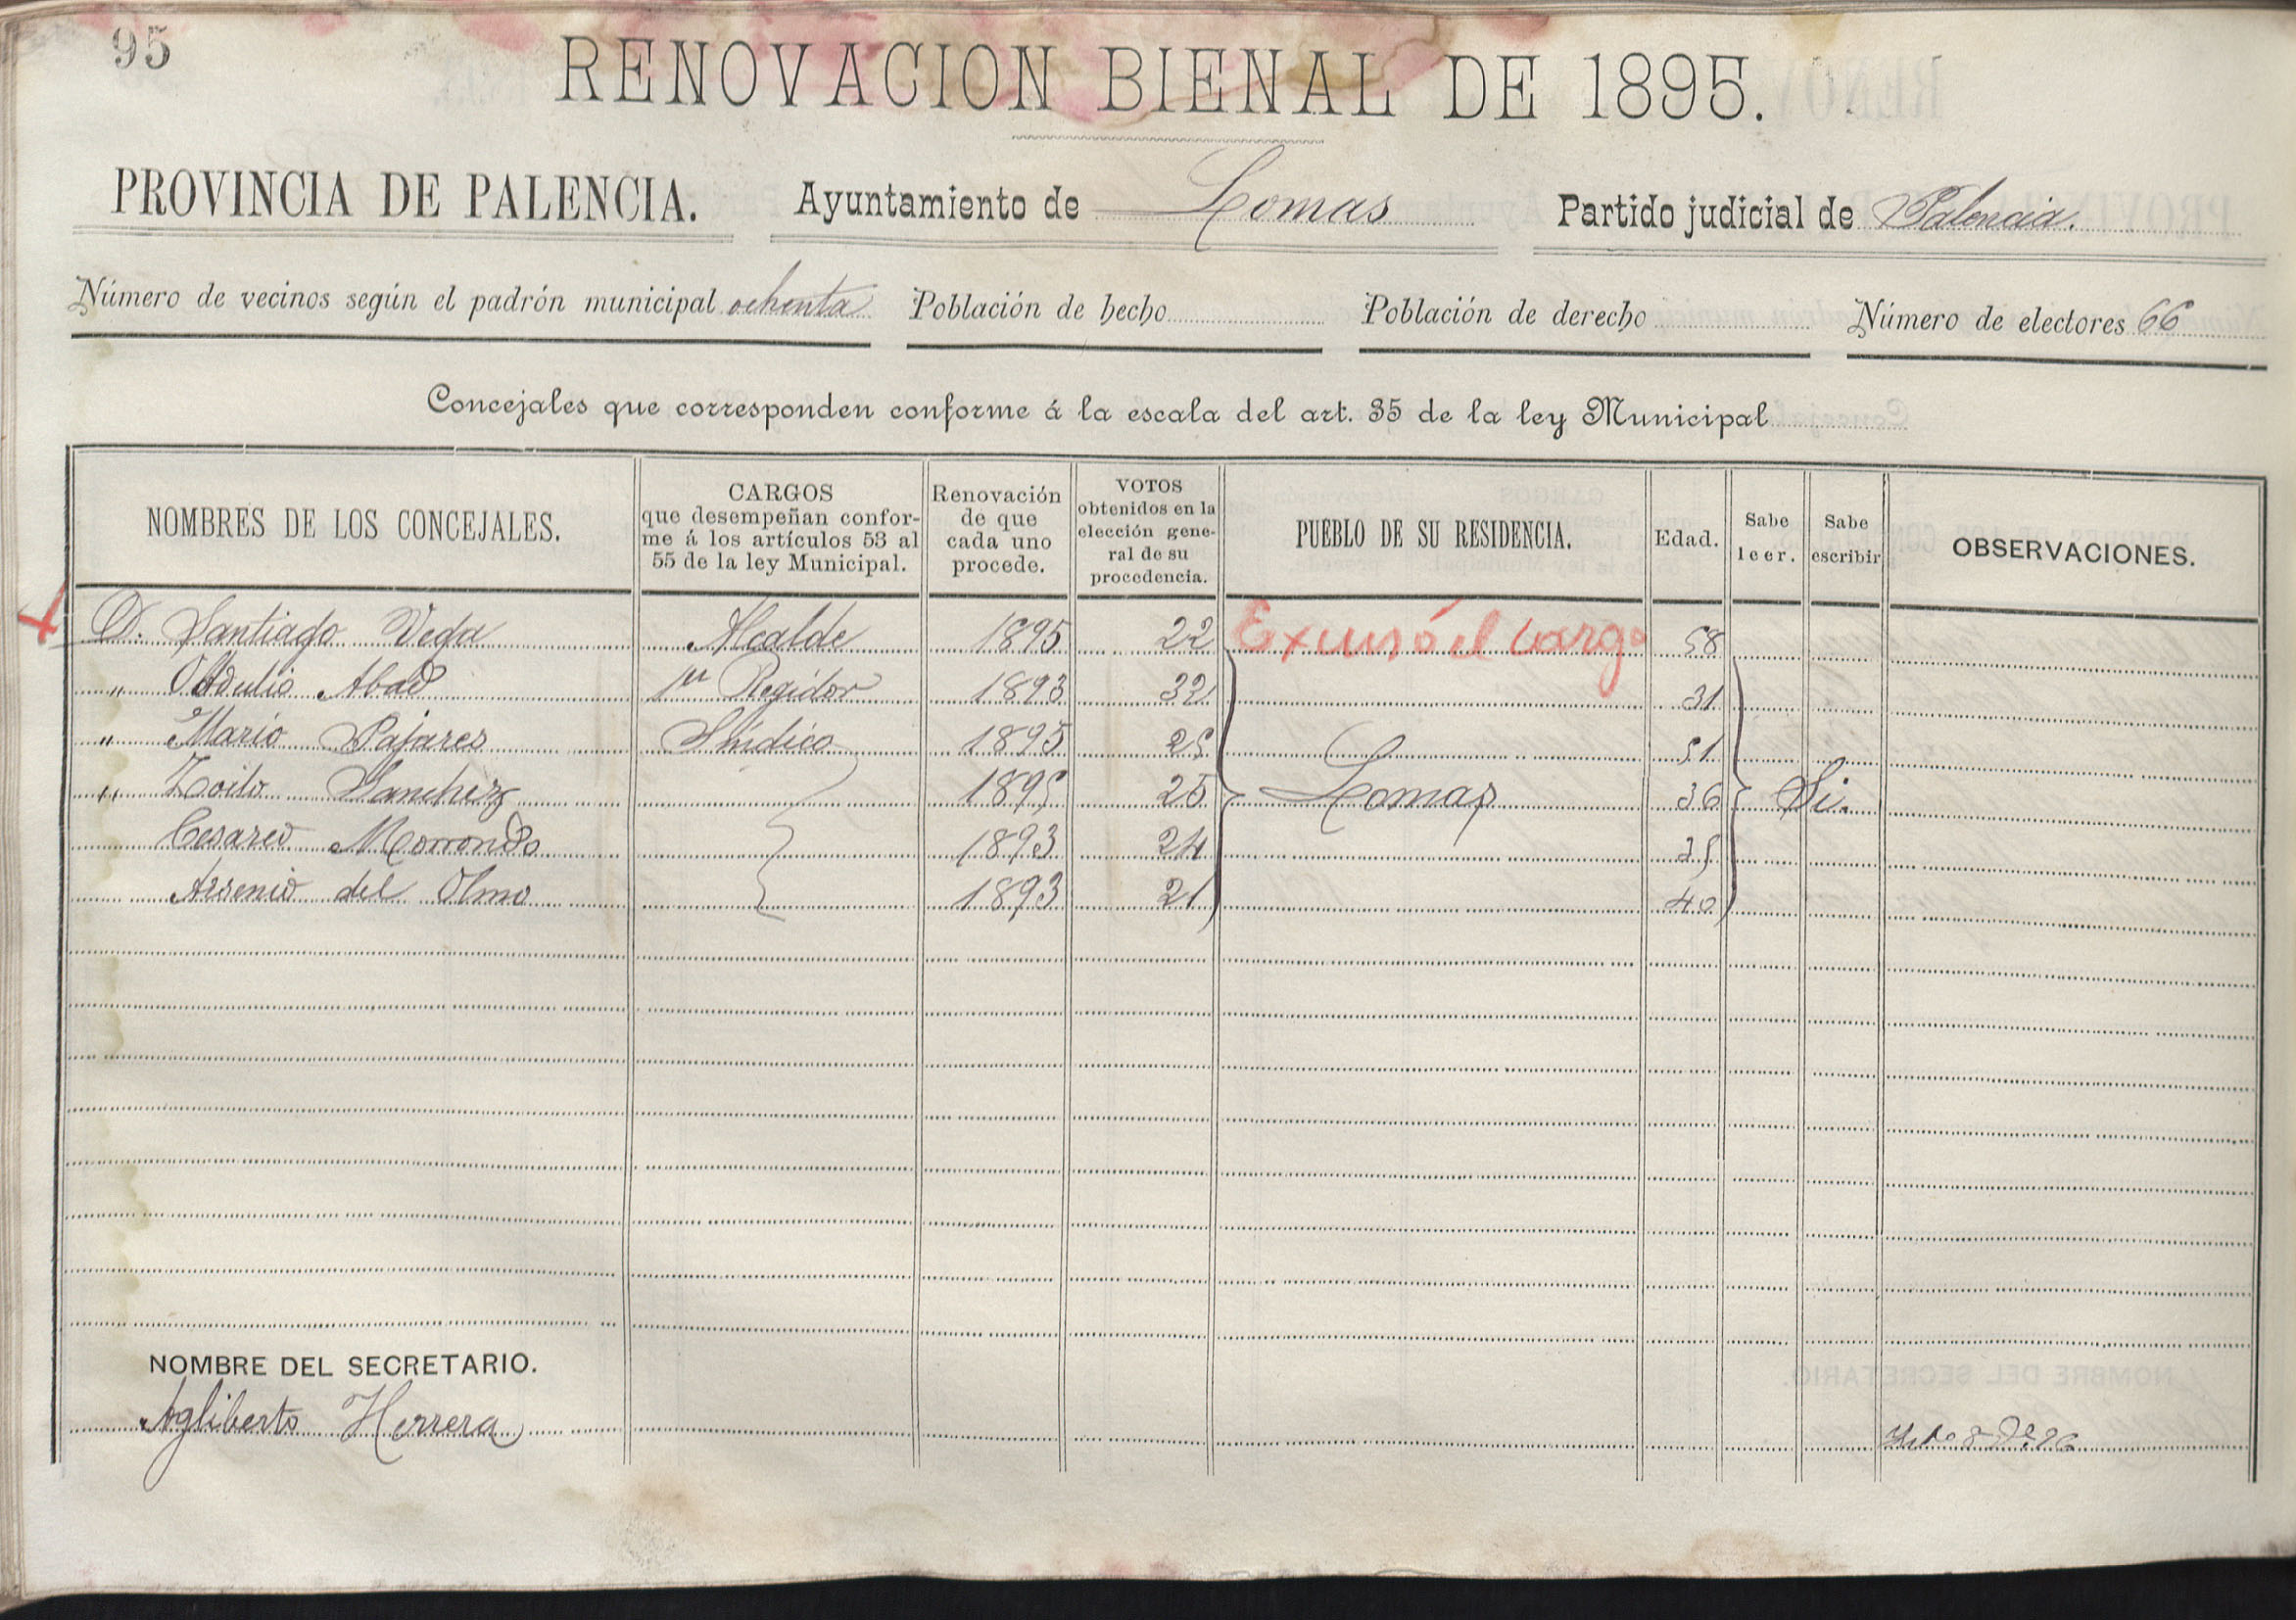 95
RENOVACION BIENAL DE 1895.
PROVINCIA DE PALENCIA. Ayuntamiento de Lomas Partido judicial de Palencia.
Número de vecinos según el padrón municipal ochenta Población de hecho Población de derecho Número de electores 66
Concejales que corresponden conforme á la escala del art. 35 de la ley Municipal
NOMBRES DE LOS CONCEJALES.
CARGOS
que desempeñan confor-
me á los artículos 53 al
55 de la ley Municipal.
Renovación
de que
cada uno
procede.
VOTOS
obtenidos en la
elección gene-
ral de su
procedencia.
PUEBLO DE SU RESIDENCIA.
Edad.
Sabe
leer.
Sabe
escribir
OBSERVACIONES.
D. Santiago Vega Alcalde 1895 22 Excusó el cargo 58
" Abad 1er Regidor 1893 32 31
" Mario Pajares Síndico 1895 25 51
" Zoilo Sanchez 1895 25 Lomas 36 Si.
Cesareo Morrondo 1893 24 35
Arsenio del Olmo 1893 21 40
NOMBRE DEL SECRETARIO.
Agliberto Herrera